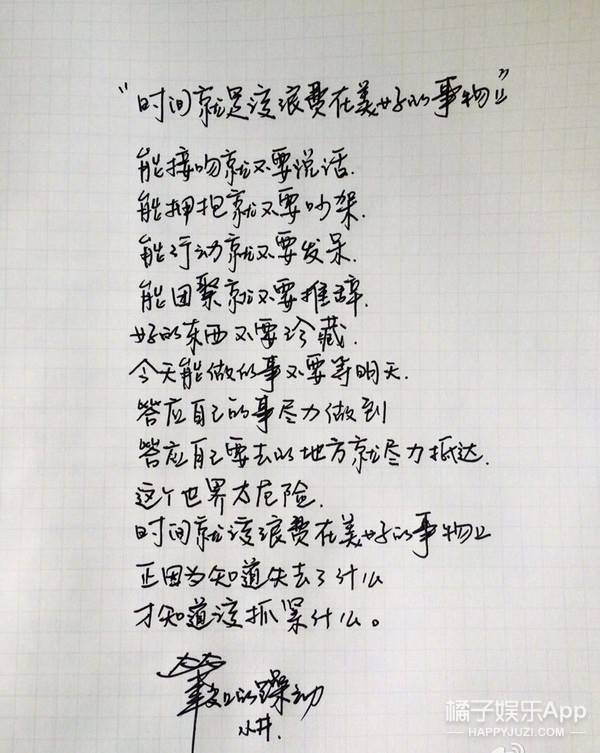 “时间就是该浪费在美好的事物上”
能接吻就不要说话.
能拥抱就不要吵架.
能行动就不要发呆.
能团聚就不要推辞.
好的东西不要珍藏.
今天能做的事不要等明天.
答应自己的事尽力做到
答应自己要去的地方就尽力抵达.
这个世界太危险.
时间就该浪费在美好的事物上
正因为知道失去了什么
才知道该抓紧什么。
的躁动
小井.
橘子娱乐App
HAPPYJUZI.COM